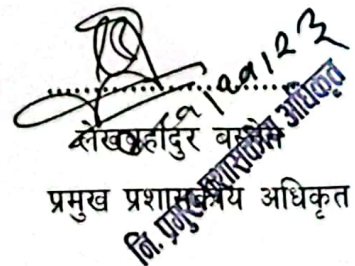 लेखबहादुर बस्नेत
प्रमुख प्रशासकीय अधिकृत
नि. प्रमुख प्रशासकीय अधिकृत